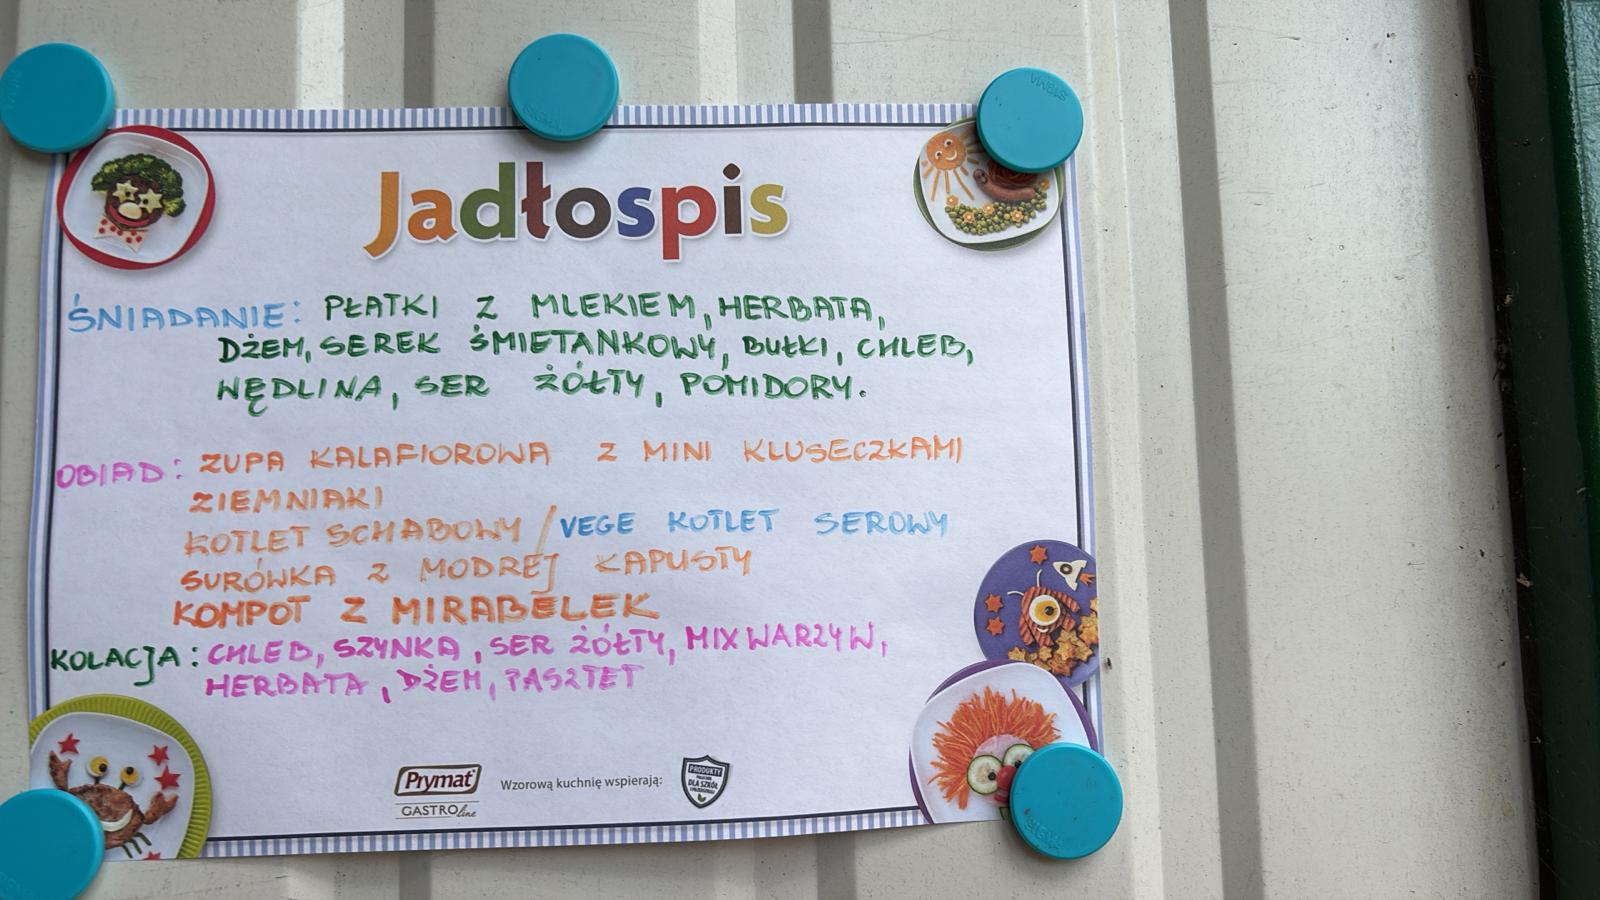 Jadłospis
ŚNIADANIE: PŁATKI Z MLEKIEM, HERBATA,
DŻEM, SEREK ŚMIETANKOWY, BUŁKI, CHLEB,
WĘDLINA, SER ŻÓŁTY, POMIDORY.
OBIAD: ZUPA KALAFIOROWA Z MINI KLUSECZKAMI
ZIEMNIAKI
KOTLET SCHABOWY / VEGE KOTLET SEROWY
SURÓWKA Z MODREJ KAPUSTY
KOMPOT Z MIRABELEK
KOLACJA: CHLEB, SZYNKA, SER ŻÓŁTY, MIX WARZYW,
HERBATA, DŻEM, PASZTET
Prymat
GASTROline
Wzorową kuchnię wspierają:
PRODUKTY
DLA SZKÓŁ